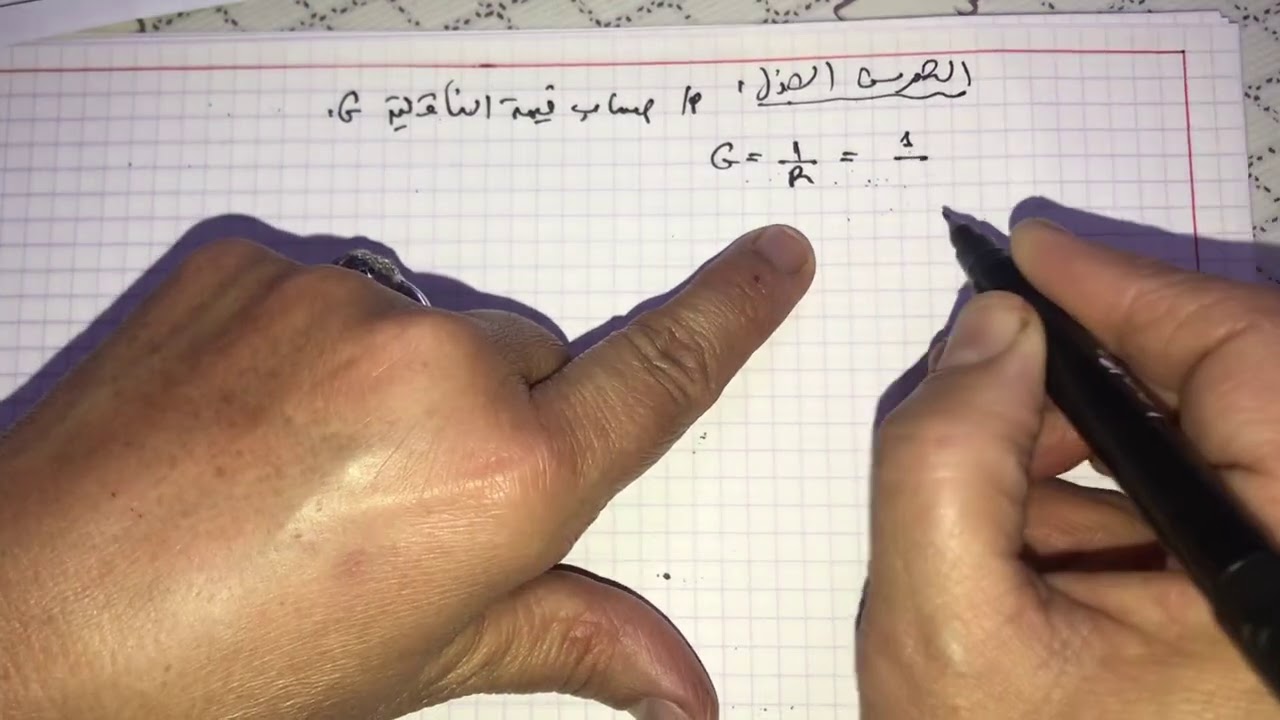 التمرين الأول: 1/ حساب قيمة الناقلية G.
G = 1/R = 1/